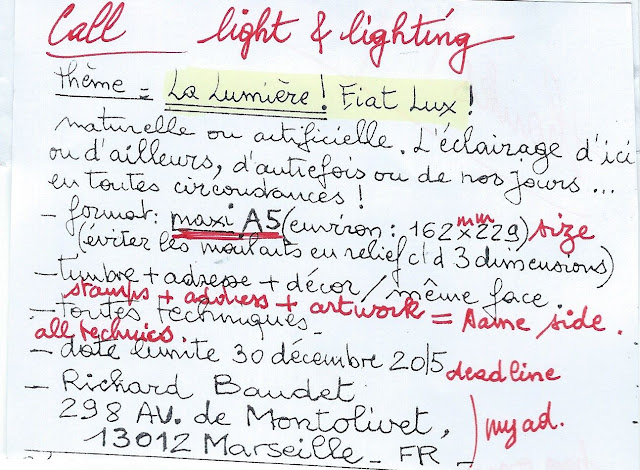 Call light & lighting
thème = La Lumière ! Fiat Lux !
naturelle ou artificielle. L'éclairage d'ici
ou d'ailleurs, d'autrefois ou de nos jours ...
en toutes circonstances !
- format : maxi A5 (environ : 162 x 229) mm size
(éviter les en relief cd 3 dimensions)
- timbre + adresse + décor / même face.
stamps + address + artwork = same side.
- toutes techniques -
all technics.
- date limite 30 décembre 2015 deadline
- Richard Baudet
298 AV. de Montolivet,
13012 Marseille - FR - my ad.